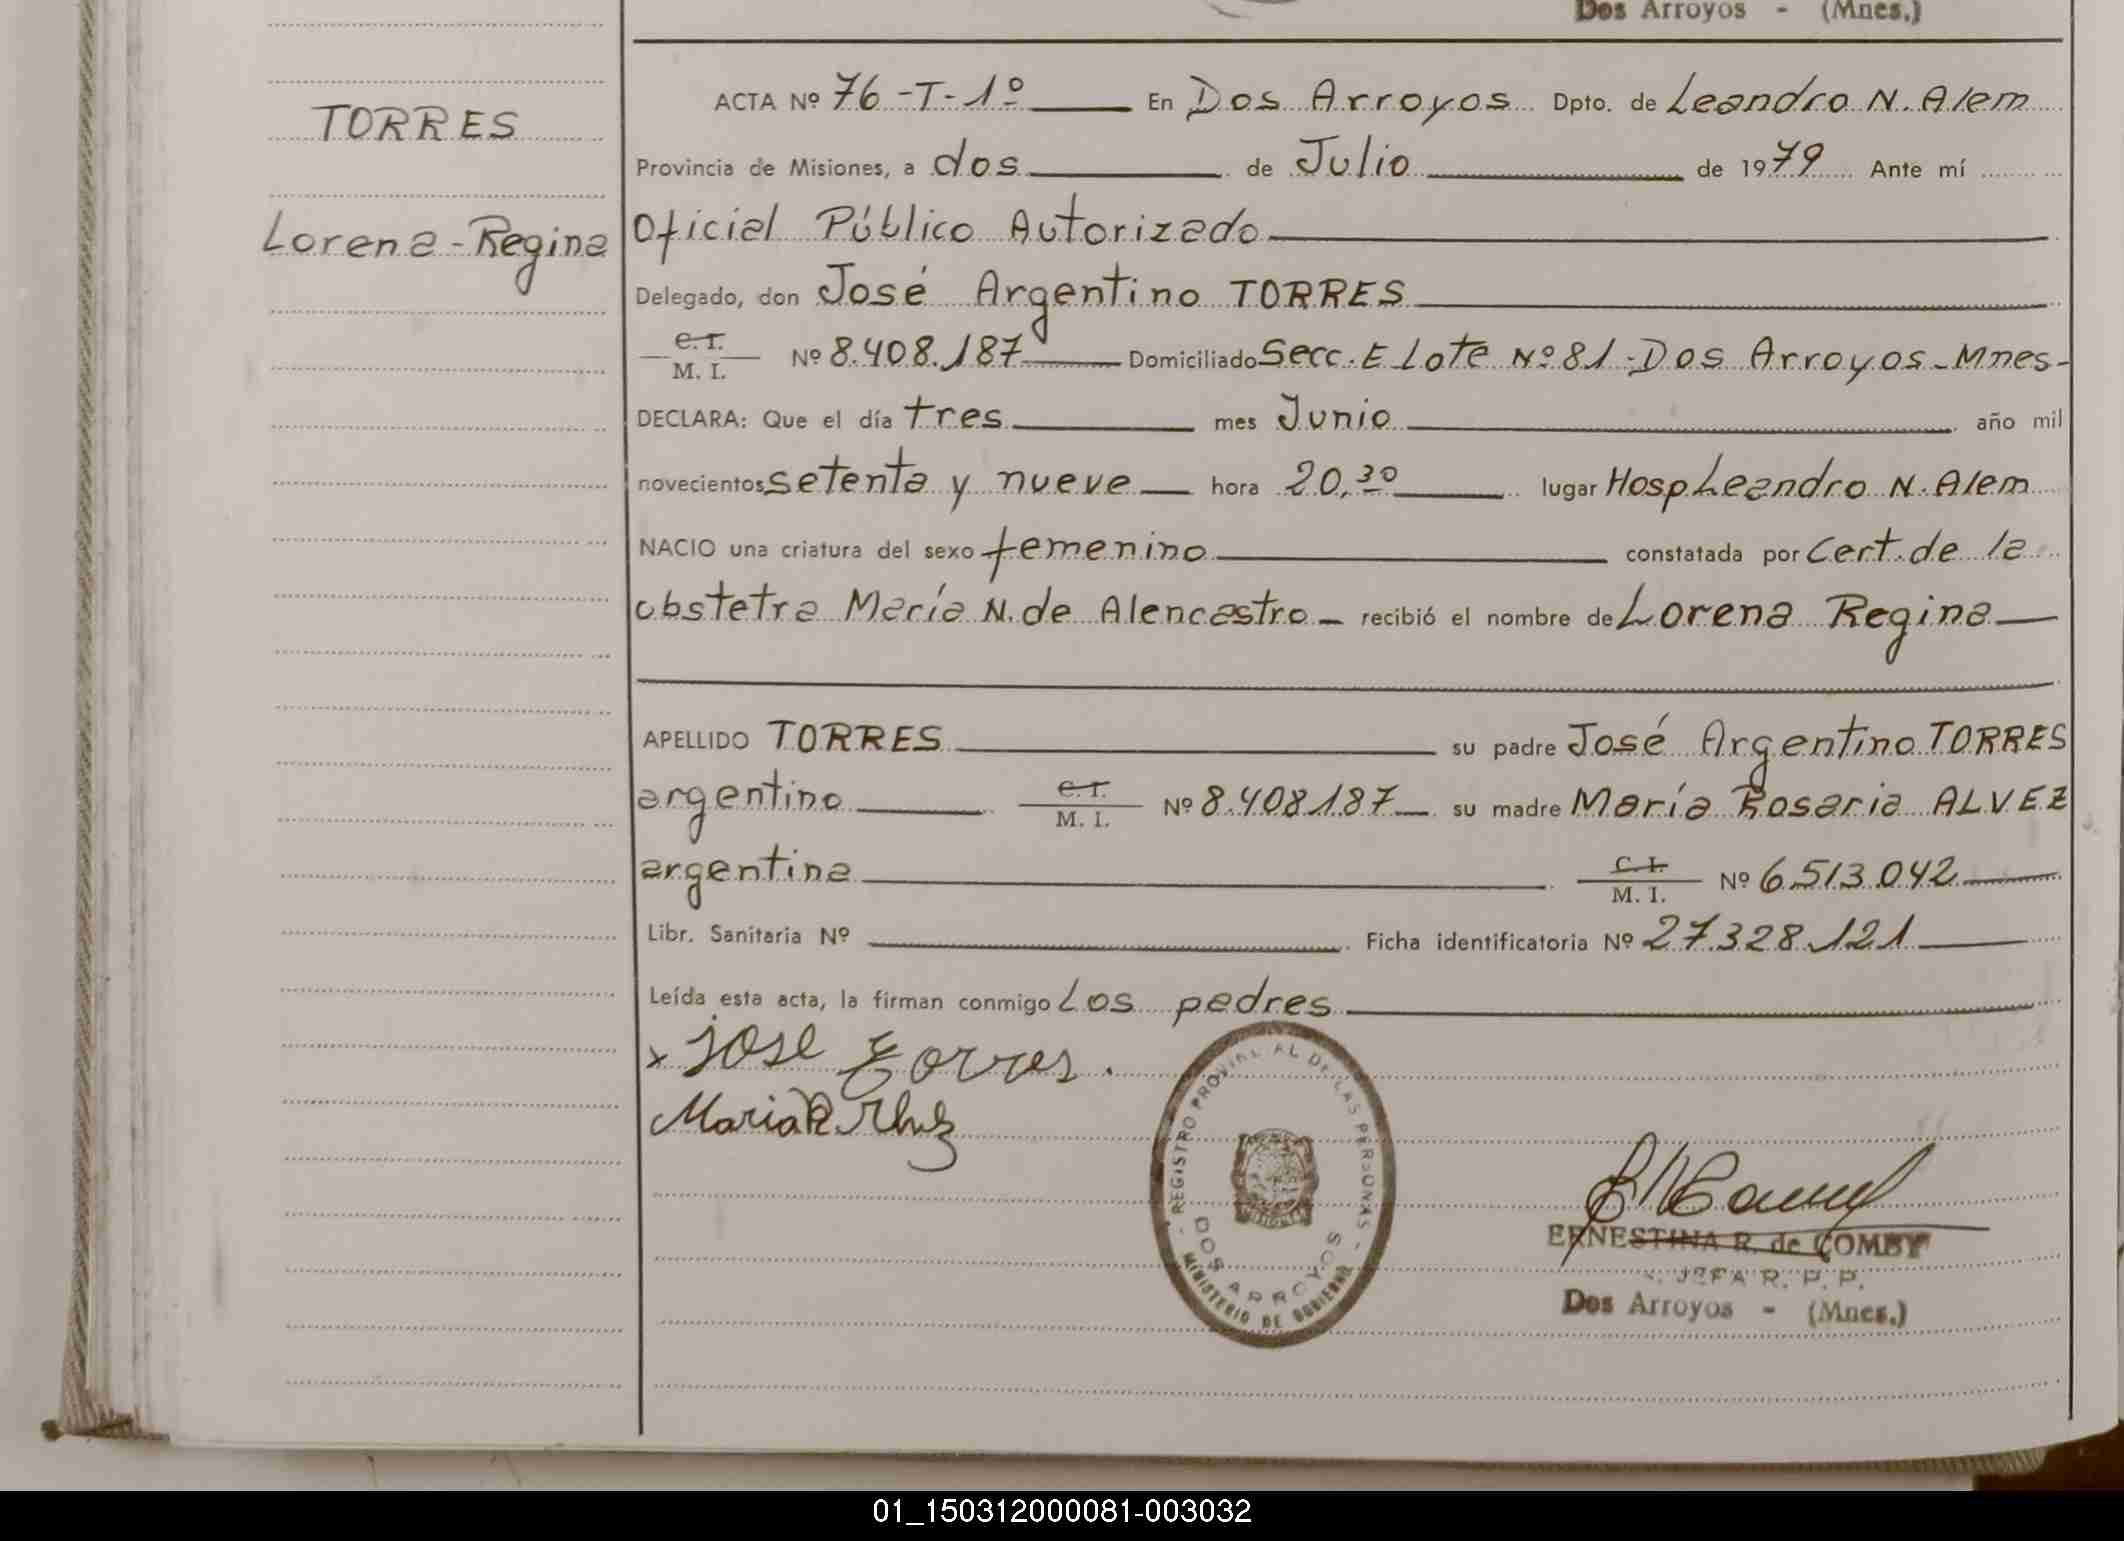 Dos Arroyos - (Mnes.)
TORRES
Lorena-Regina
ACTA Nº 76-T-1º En Dos Arroyos Dpto. de Leandro N. Alem
Provincia de Misiones, a dos de Julio de 1979 Ante mí
Oficial Público Autorizado
Delegado, don José Argentino TORRES
C.I. M. I. Nº 8.408.187 Domiciliado Secc. E Lote Nº 81-Dos Arroyos-Mnes-
DECLARA: Que el día tres mes Junio año mil
novecientos setenta y nueve hora 20,30 lugar Hosp Leandro N. Alem
NACIO una criatura del sexo femenino constatada por Cert. de la
obstetra María N. de Alencastro recibió el nombre de Lorena Regina
APELLIDO TORRES su padre José Argentino TORRES
argentino C.I. M. I. Nº 8.408.187 su madre María Rosaria ALVEZ
argentina C.I. M. I. Nº 6.513.042
Libr. Sanitaria Nº Ficha identificatoria Nº 27.328.121
Leída esta acta, la firman conmigo Los padres
x José Torres.
Maria R Alvez
- REGISTRO PROVINCIAL DE LAS PERSONAS -
DOS ARROYOS
MINISTERIO DE GOBIERNO
ERNESTINA R. de COMBY
JEFA R. P. P.
Dos Arroyos - (Mnes.)
01_150312000081-003032